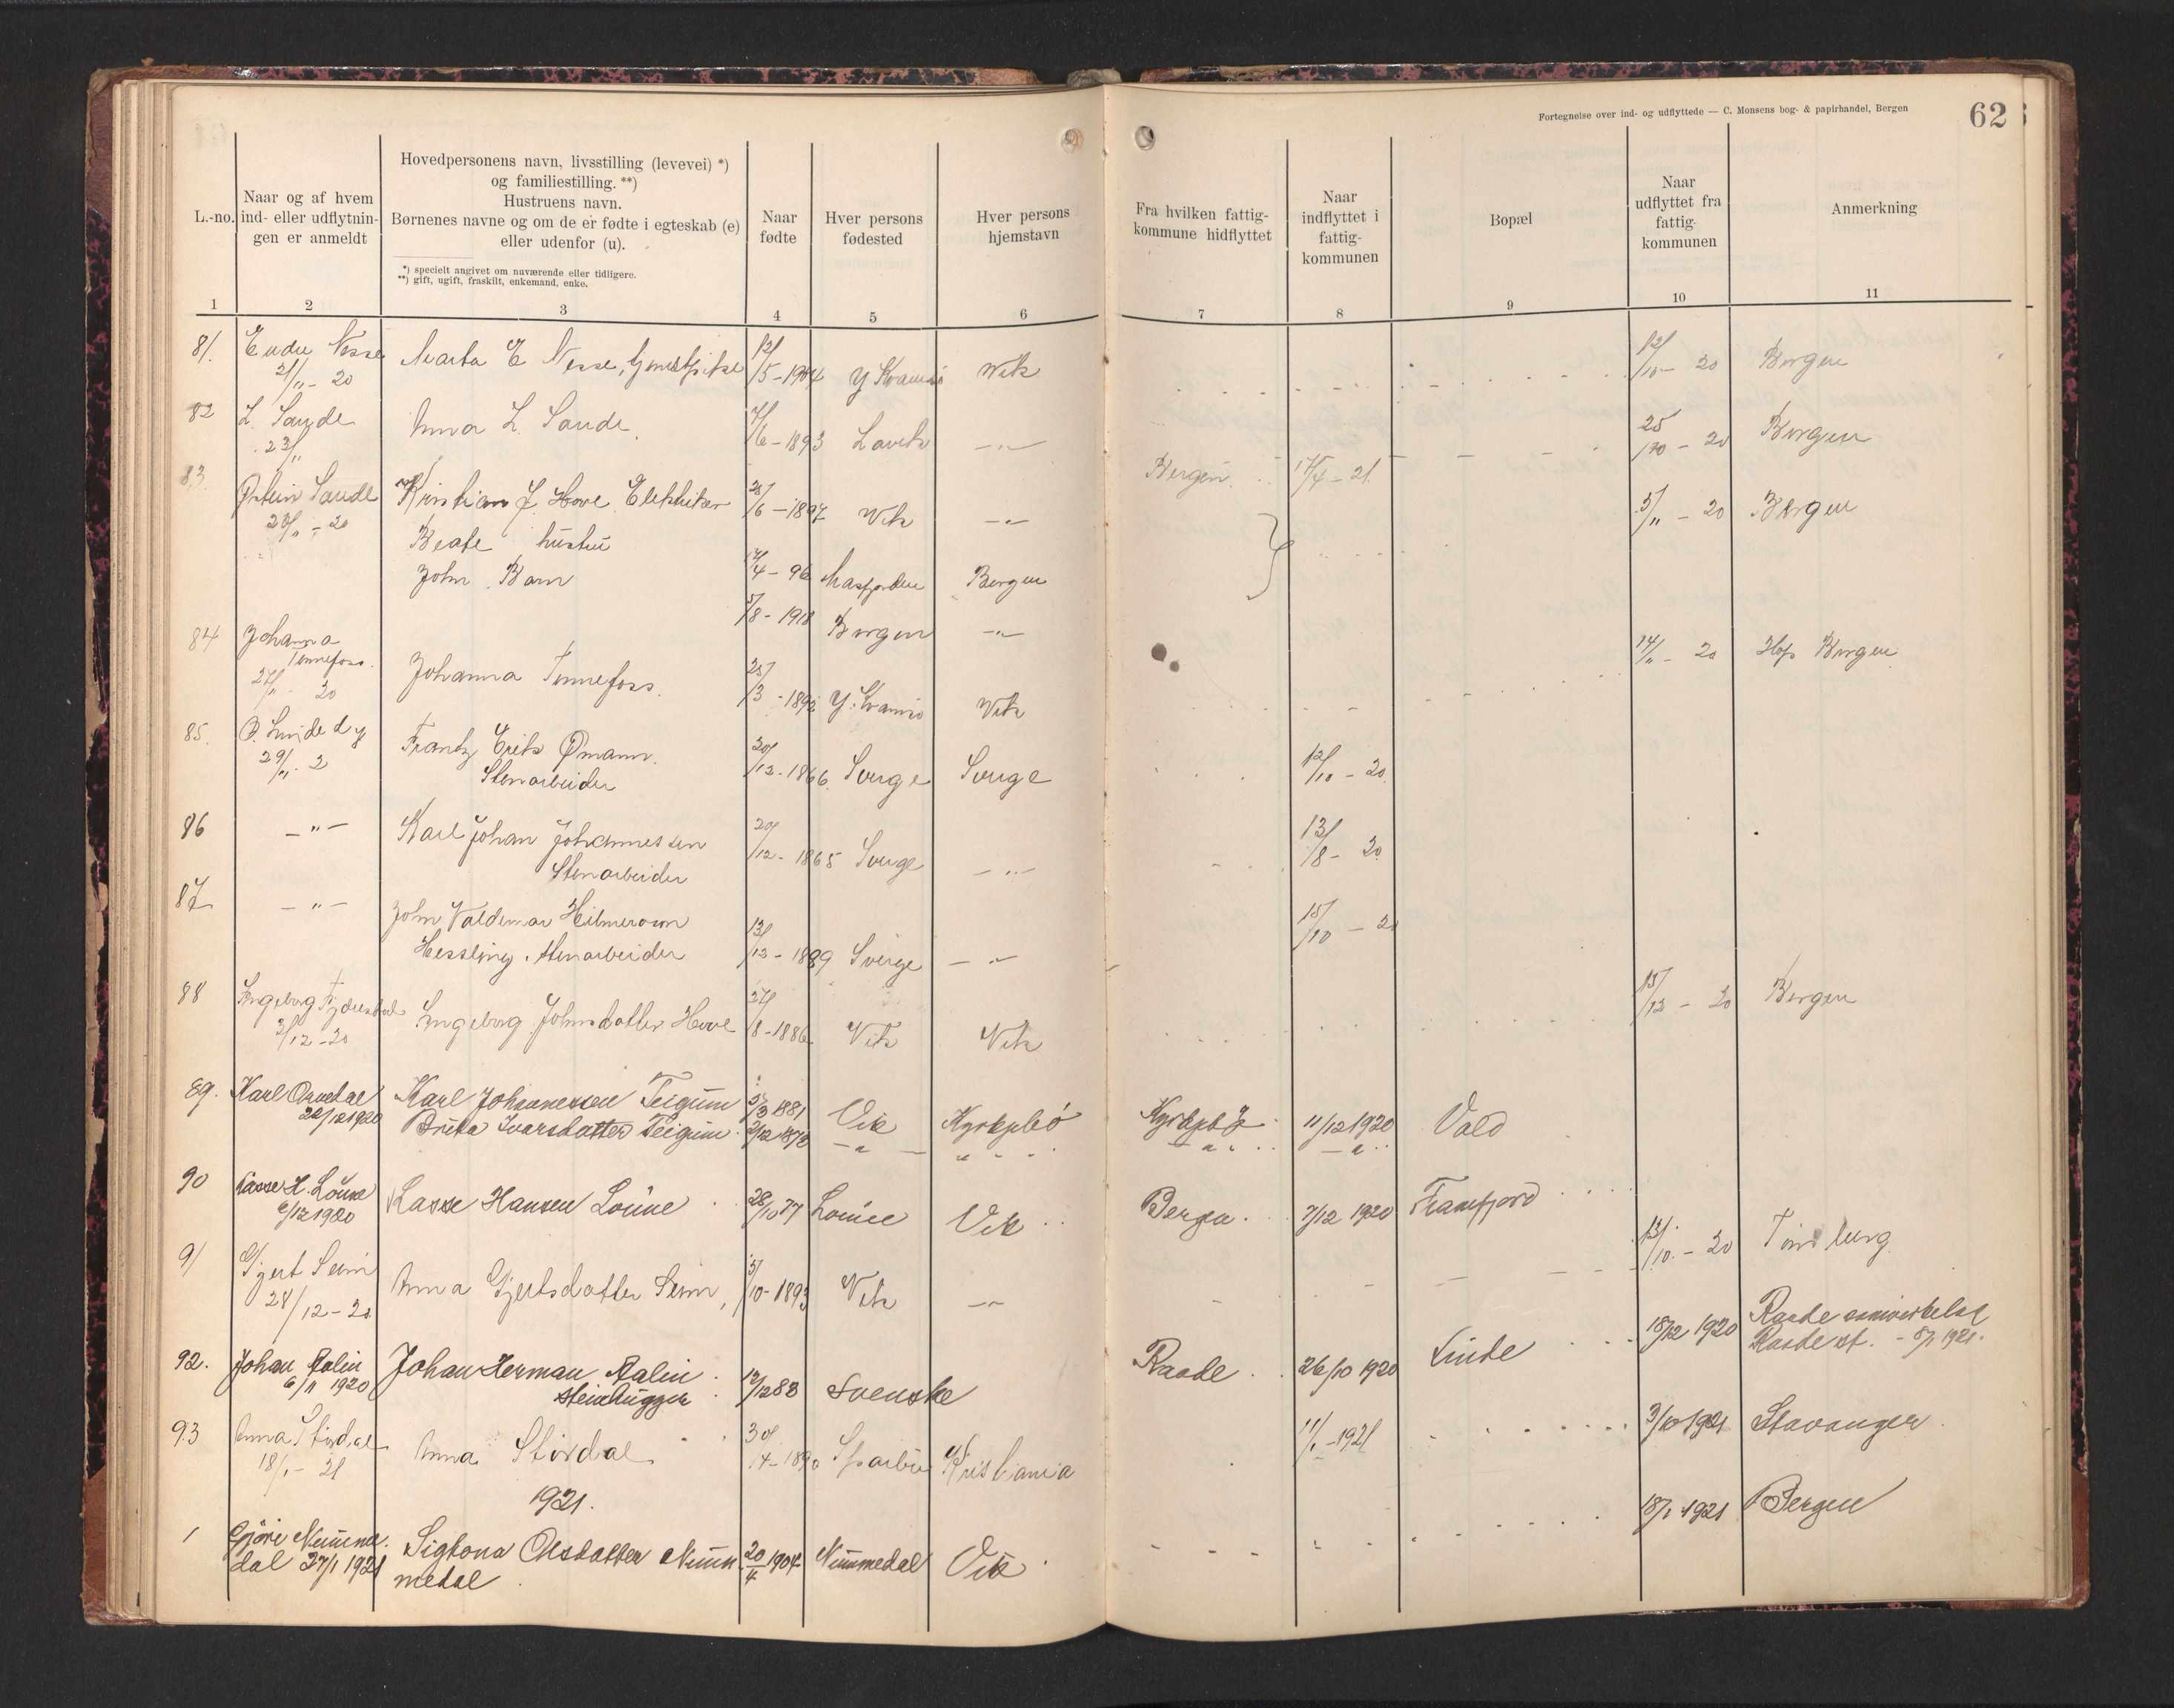 Fortegnelse over ind- og udflyttede — C. Monsens bog- & papirhandel, Bergen
62
L.-no.
Naar og af hvem
ind- eller udflytnin-
gen er anmeldt
Hovedpersonens navn, livsstilling (levevei) *)
og familiestilling. **)
Hustruens navn.
Børnenes navne og om de er fødte i egteskab (e)
eller udenfor (u).
*) specielt angivet om nuværende eller tidligere.
**) gift, ugift, fraskilt, enkemand, enke.
Naar
fødte
Hver persons
fødested
Hver persons
hjemstavn
Fra hvilken fattig-
kommune hidflyttet
Naar
indflyttet i
fattig-
kommunen
Bopæl
Naar
udflyttet fra
fattig-
kommunen
Anmerkning
1 2 3 4 5 6 7 8 9 10 11
81. Endre Nesse Marta E Nesse, 12/5-1904 Y Kvamsø Wik 12/10- 20 Bergen
21/11- 20
82 L. Sande Anna L. Sande 7/6-1893 Lavik —"— 25/10 - 20 Bergen
23/11
Bergen 17/4-21
83 Østein Sande Kristian J. Hove Elektriker 28/6-1897 Wik —"— 5/11 - 20 Bergen
23/11 - 20
Beate hustru 17/4-96 Masfjorden Bergen
John Barn 5/8-1918 Bergen —"—
84 Johanna
Tennefoss Johanna Tennefoss. 25/3-1892 Y. Kvamsø Wik 14/11- 20 Hop Bergen
27/11- 20
85. O. Linde Frantz Erik Ømann. 20/12-1866 Sverge Sverge 12/10-20
29/11. 2 Stenarbeider
86 —"— Karl Johan Johannessen 20/12-1865 Sverge —"— 13/8- 20
Stenarbeider
87 —"— John Valdemar Hilmerson
Hessling. Stenarbeider 13/12-1889 Sverige —"— 15/10 - 20
88 Ingeborg Ingeborg Johnsdatter Hove 27/8-1886 Vik Vik 15/12 - 20 Bergen
2/12-20
89. Karl Orvedal Karl Johannessen Teigum 5/3 1881 Vik Kyrkjebø Kyrkjebø 11/12 1920 Vold
22/12 1920 Brita Ivarsdatter Teigum 2/12 1878 —"— " —"— —"—
90 Lasse H. Loüne Lasse Hansen Loüne 28/10 77 Loüne Vik Bergen 7/12 1920 Framfjord
6/12 1920
91 Gjert Seim Anna Gjertsdatter Seim, 5/10-1893 Vik —"— 12/10.-20 Tønsberg
28/12-20
92. Johan Ralin Johan Herman Ralin 12/12 88 Svenske Raade 26/10 1920 Linde 18/12 1920 Raade
6/11 1920 Steinhugger Raade st. - 8/1 1921.
93 Anna Størdal Anna Størdal 30/4-1890 Sparbu Kristiania 11/1-1921 3/10 1921 Stavanger
18/1-21
1921.
1 Gjøri Nümme- Sigtona Olsdatter Nüm- 20/4 1904 Nümmedal Vik 18/1 1921 Bergen
dal 27/1 1921 medal